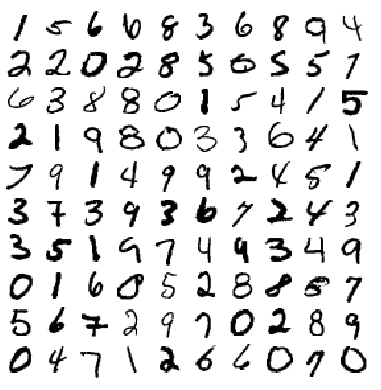 1 5 6 6 8 3 6 8 9 4
2 2 0 2 8 5 0 5 5 1
6 3 8 8 0 1 5 4 1 5
2 1 9 8 0 3 3 6 4 1
7 9 1 4 9 9 2 4 5 1
3 7 3 9 3 6 7 2 4 3
3 5 1 9 7 4 9 3 4 9
0 1 6 0 5 2 8 8 5 7
5 6 7 2 9 7 0 2 8 9
0 4 7 1 2 6 6 0 7 0